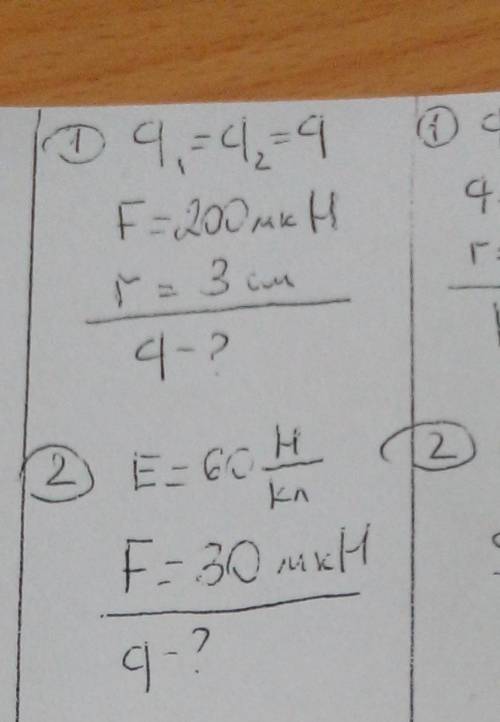 ① q₁=q₂=q
F=200мкН
r=3см
q-?
② E=60 Н/Кл
F=30мкН
q-?
①
②